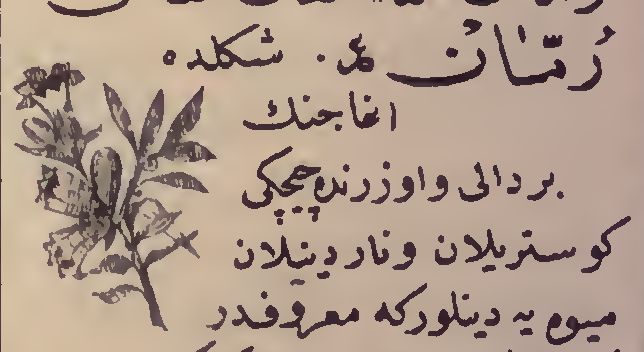 رُمّانْ ع. شكلده
اغاجنك
بر دالى واوزرنده چيچكى
كوستريلان ونار دينيلان
ميوه يه دينلور كه معروفدر